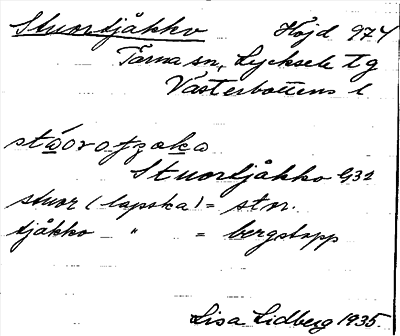 Stuortjåkko Höjd 974
Tärna sn, Lycksele tg
Västerbottens l
Stuortjåkko G32
stuor (lapska) = stor.
tjåkko " = bergstopp
Lisa Lidberg 1935.